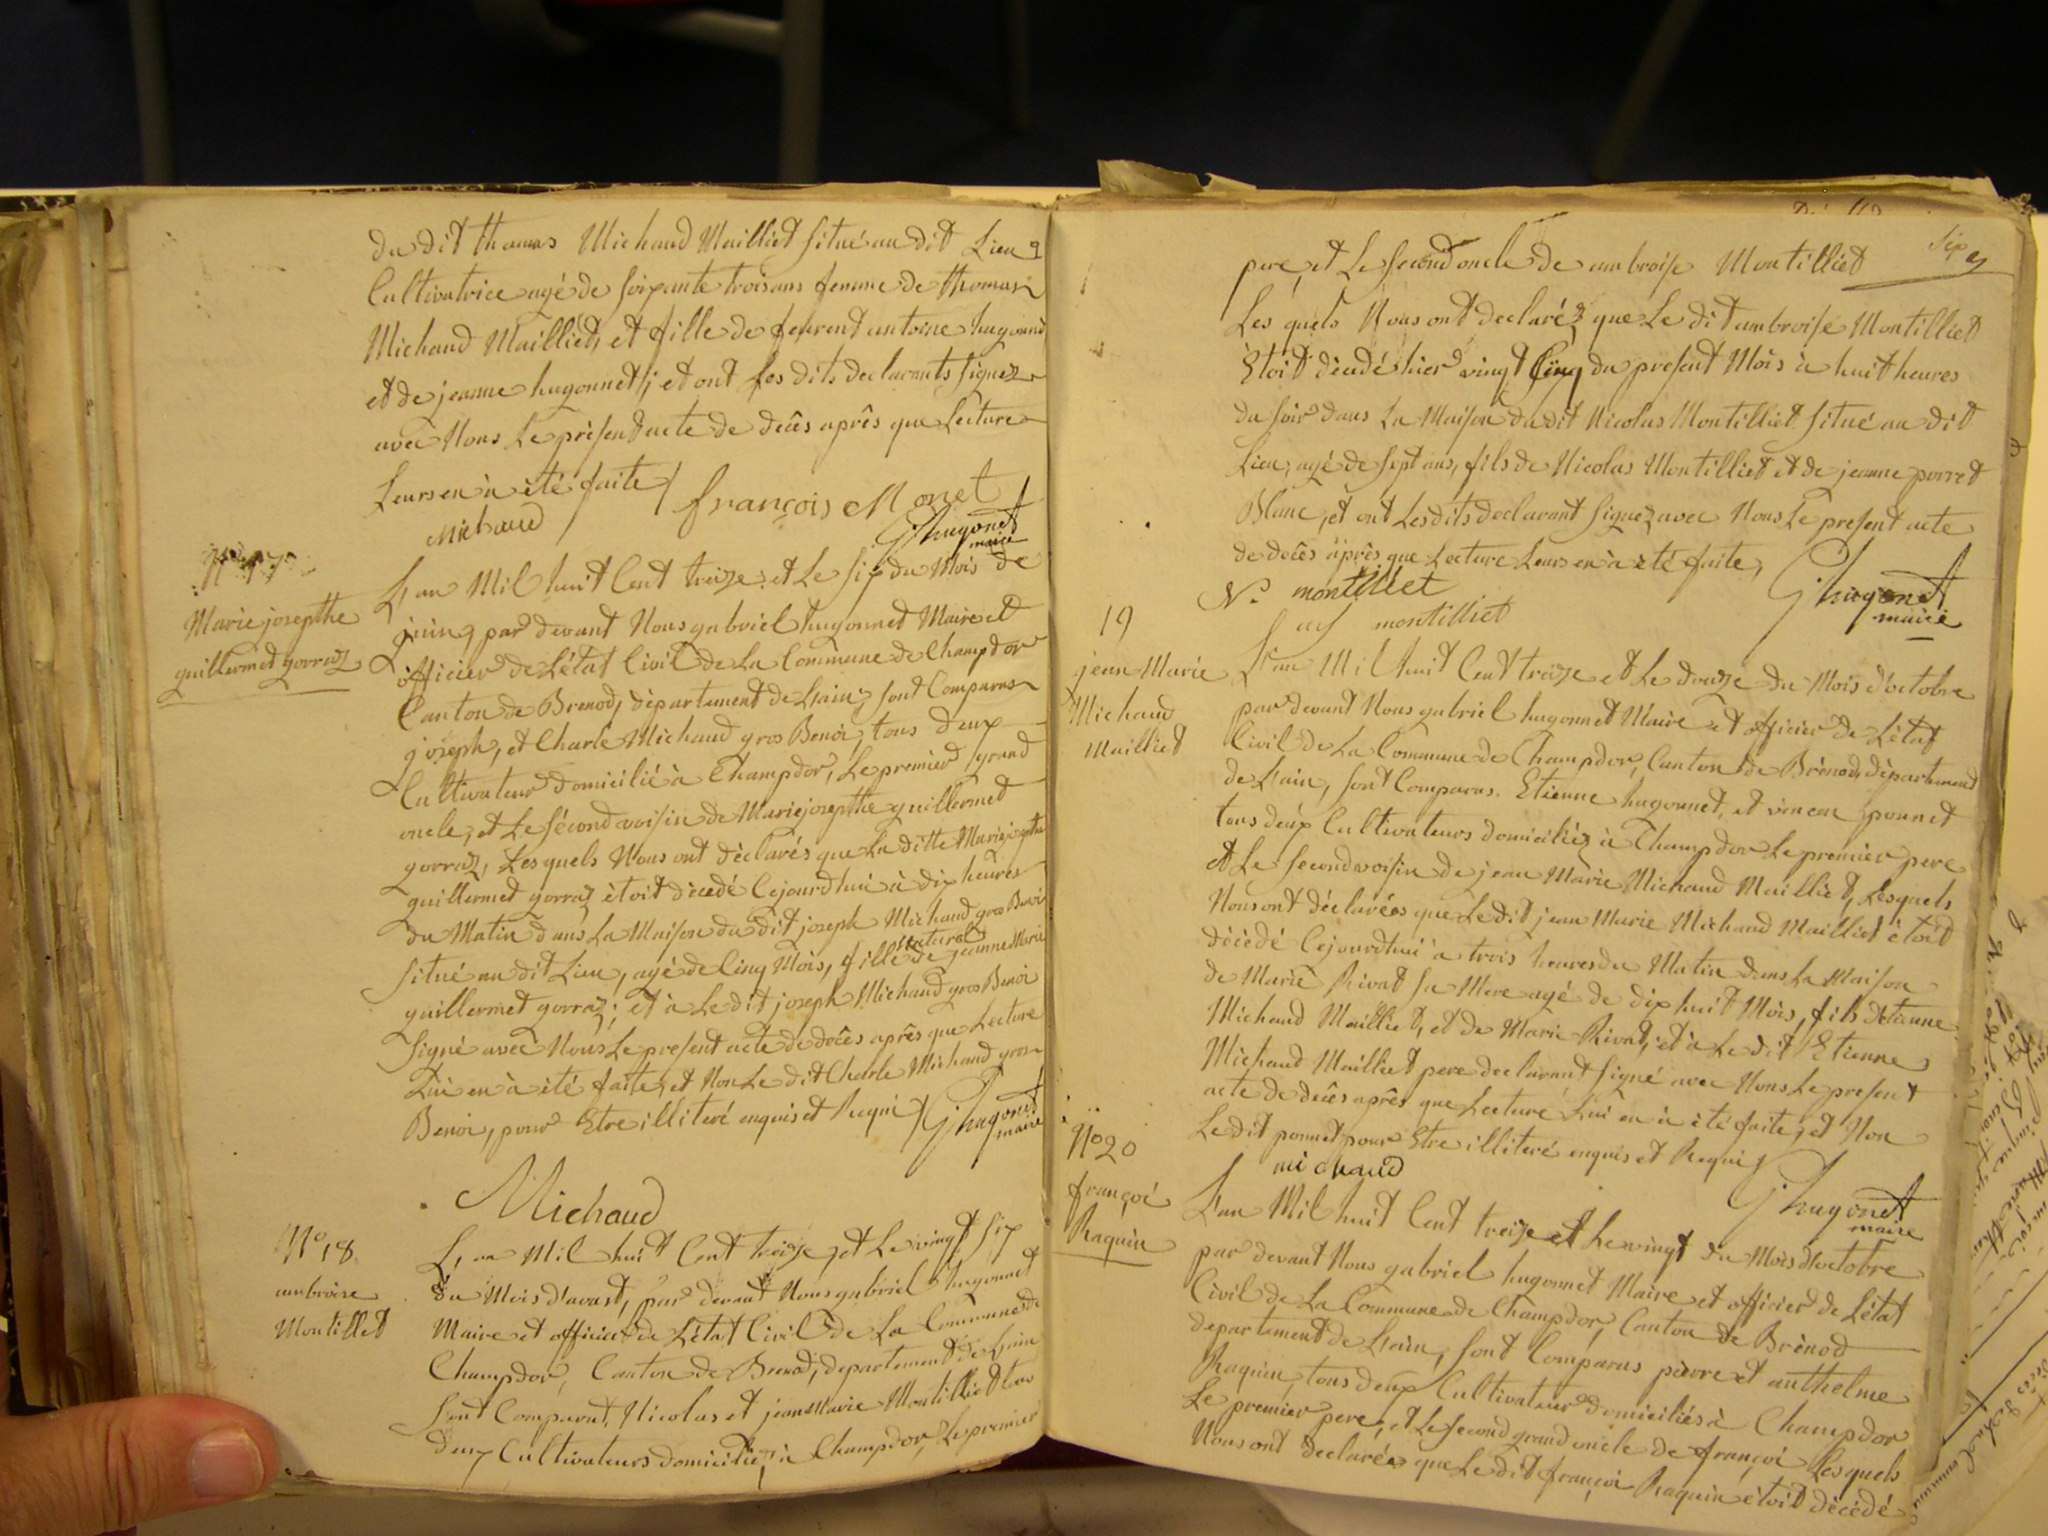 du dit thomas Michaud Mailliet situé au dit Lieu
Cultivatrice agé de soixante trois ans femme de thomas
Michaud Mailliet, et fille de feurent antoine hugonnet
et de jeanne hugonnet, et ont les dits declarants signez
avec Nous Le présent acte de decès après que Lecture
Leurs en à été faite
françois Monet
Michaud
G hugonet
maire
N° 17
Marie josephte
guillermet gorraz
L'an Mil huit Cent treize et Le six du Mois de
juin, par devant Nous gabriel hugonnet Maire et
officier de L'état Civil de La Commune de Champdor
Canton de Brenod, département de L'ain, sont Comparus
joseph, et Charle Michaud gros Benoi, tous deux
Cultivateur domicilié à Champdor, Le premier grand
oncle, et Le sécond voisin de Marie josephte guillermet
gorraz, Les quels Nous ont déclarés que La ditte Marie josephte
guillermet gorraz étoit décédé Cejourdhui à dix heures
du Matin dans La Maison du dit joseph Michaud gros Benoi
situé au dit Lieu, agé de Cinq Mois, fille naturel de jeanne Marie
guillermet gorraz; et à Le dit joseph Michaud gros Benoi
signé avec Nous Le present acte de decès après que Lecture
Lui en à été faite, et Non Le dit Charle Michaud gros
Benoi, pour Etre illiteré enquis et Requi
G hugonet
maire
Michaud
N° 18
ambroise
Montillet
L'an Mil huit Cent treize et Le vingt six
du Mois d'avast, par devant Nous gabriel hugonnet
Maire et officier de L'état Civil de La Commune de
Champdor, Canton de Brenod, departement de L'ain
sont Comparut, Nicolas et jean Marie Montilliet tous
deux Cultivateurs domiciliez à Champdor, Le premier
six
pere, et Le second oncle de ambroise Montilliet
Les quels Nous ont declaréz que Le dit ambroise Montilliet
Etoit décédé hier vingt Cinq du present Mois à huit heures
du soir dans La Maison du dit Nicolas Montilliet situé au dit
Lieu, agé de sept ans, fils de Nicolas Montilliet et de jeanne porret
Blanc, et ont Les dits declarant signez avec Nous Le present acte
de decès après que Lecture Leurs en à été faite,
N. montilliet
montilliet
G hugonet
maire
19
jean Marie
Michaud
Mailliet
L'an Mil huit Cent treize et Le douze du Mois d'octobre
par devant Nous gabriel hugonnet Maire et officier de L'état
Civil de La Commune de Champdor, Canton de Brénod, département
de L'ain, sont Comparus. Etienne hugonnet, et vincen ponnet
tous deux Cultivateurs domiciliéz à Champdor Le premier pere
et Le second voisin de jean Marie Michaud Mailliet, Lesquels
Nous ont déclarées que Le dit jean Marie Michaud Mailliet étoit
décédé Cejourdhui à trois heures du Matin dans La Maison
de Marie Rivat sa Mere agé de dix huit Mois, fils d'Etienne
Michaud Mailliet, et de Marie Rivat, et à Le dit Etienne
Michaud Mailliet pere declarant signé avec Nous Le present
acte de decès après que Lecture Lui en à été faite, et Non
Le dit ponnet pour Etre illiteré enquis et Requi
michaud
G hugonet
maire
N° 20
françoi
Raquin
L'an Mil huit Cent treize et Le vingt du Mois d'octobre
par devant Nous gabriel hugonnet Maire et officier de L'état
Civil de La Commune de Champdor, Canton de Brénod
departement de L'ain, sont Comparus pierre et anthelme
Raquin, tous deux Cultivateur domiciliés à Champdor
Le premier pere, et Le second grand oncle de françoi Lesquels
Nous ont declarées que Le dit françoi Raquin étoit décédé